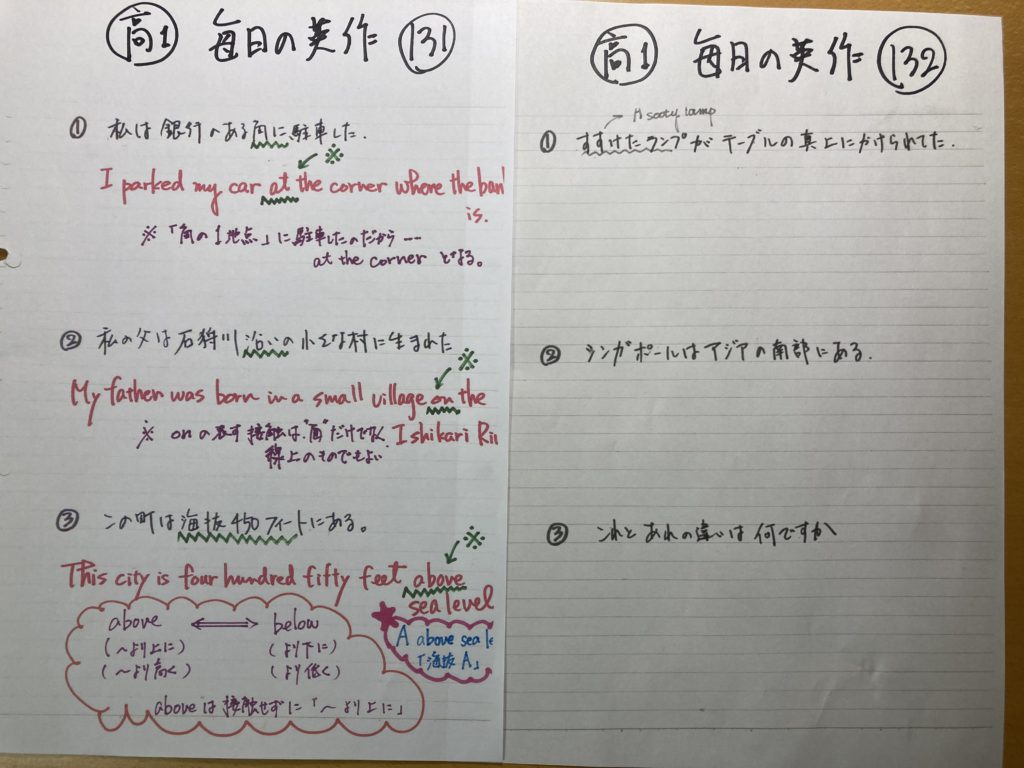 高1 毎日の英作 131
① 私は銀行のある角に駐車した.
※
I parked my car at the corner where the ban
is.
※「角の1地点」に駐車したのだから---
at the cornerとなる。
② 私の父は石狩川沿いの小さな村に生まれた
※
My father was born in a small village on the
Ishikari Ri
※ onの表す接触は、"面"だけでなく
線上のものでもよい
③ この町は海抜450フィートにある。
※
This city is four hundred fifty feet above
sea level
above ⟺ below
(~より上に) (より下に)
(~より高く) (より低く)
aboveは接触せずに「~より上に」
A above sea le
「海抜A」
高1 毎日の英作 132
A sooty lamp
① すすけたランプがテーブルの真上にかけられてた.
② シンガポールはアジアの南部にある.
③ これとあれの違いは何ですか